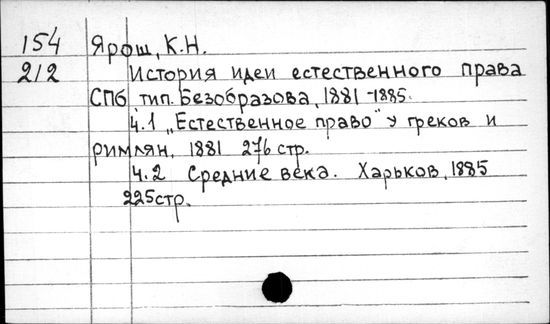 154 Ярош, К.Н.
212 История идеи естественного права
СПб тип. Безобразова, 1881-1885.
ч.1 „Естественное право" у греков и
римлян, 1881 276 стр.
ч.2 Средние века. Харьков, 1885
225стр.